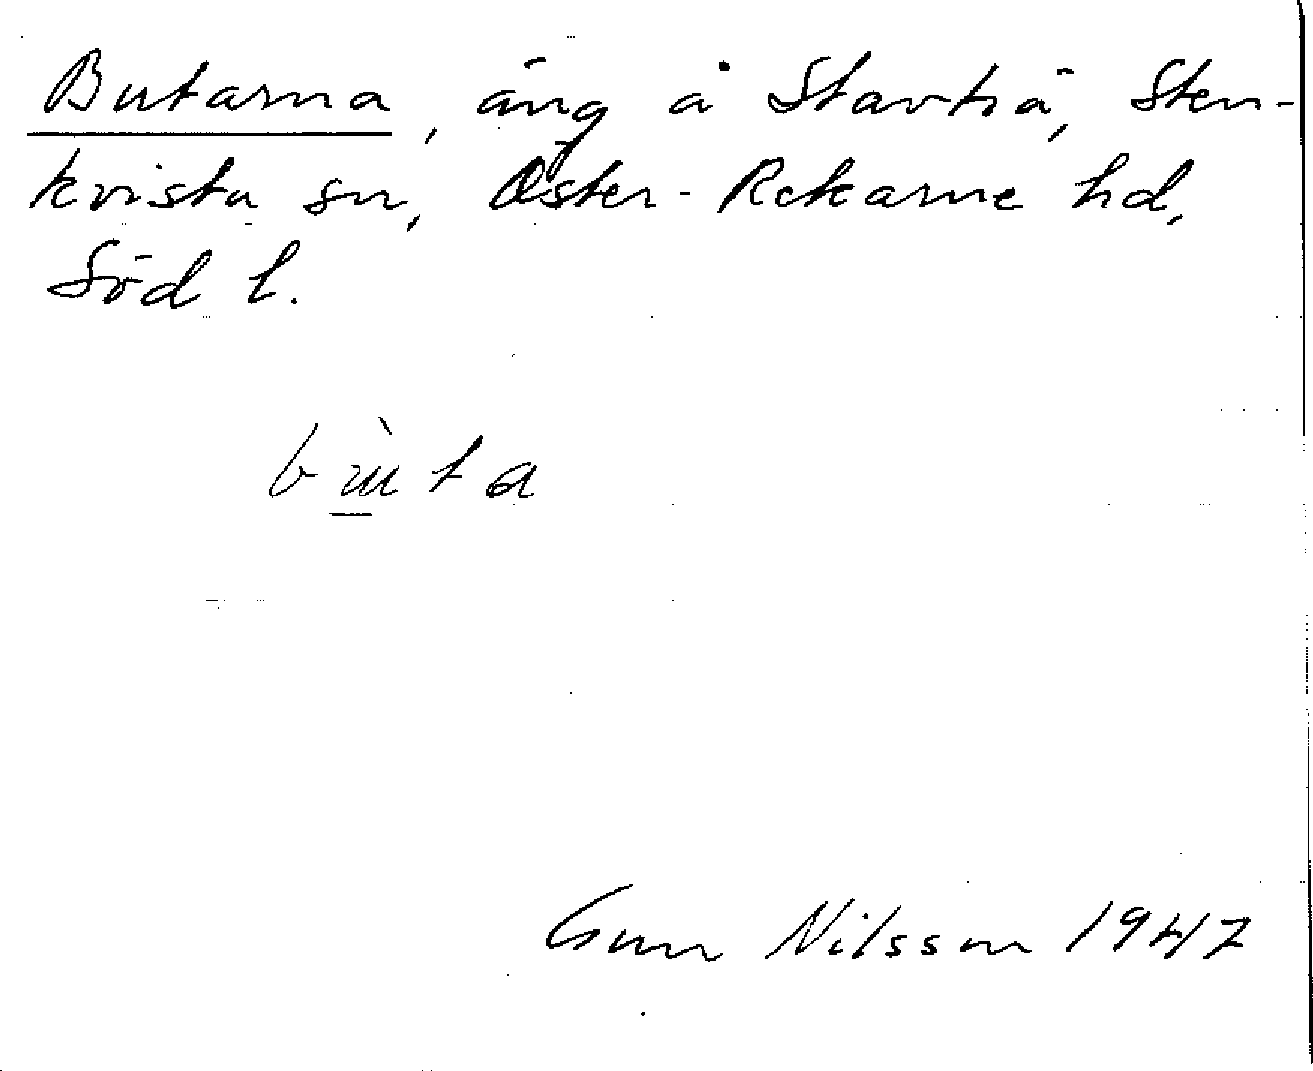 Butarna, äng å Stavträ, Sten-
kvista sn, Öster-Rekarne hd,
Söd l.
bùta
Gun Nilsson 1947